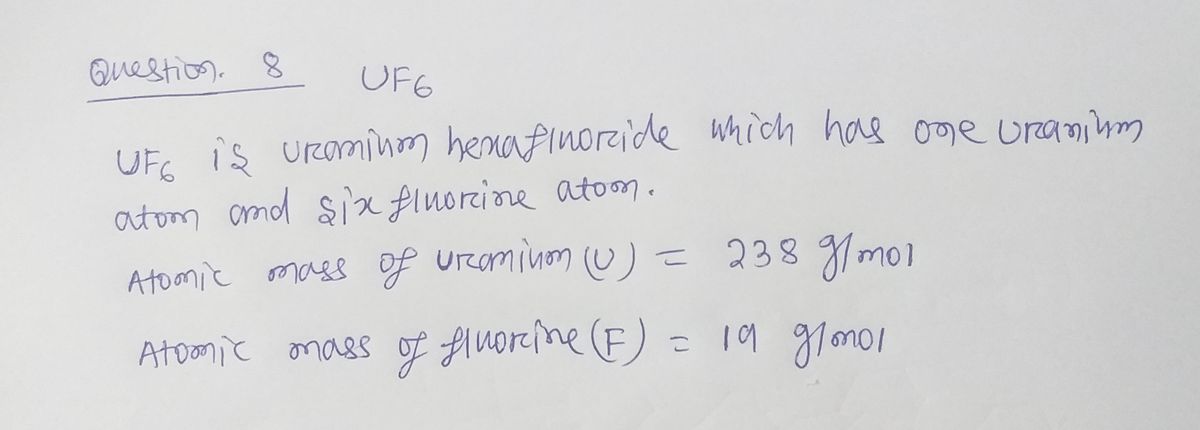 Question. 8 UF6
UF6 is uranium hexafluoride which has one uranium
atom and six fluorine atom.
Atomic mass of uranium (U) = 238 g/mol
Atomic mass of fluorine (F) = 19 g/mol